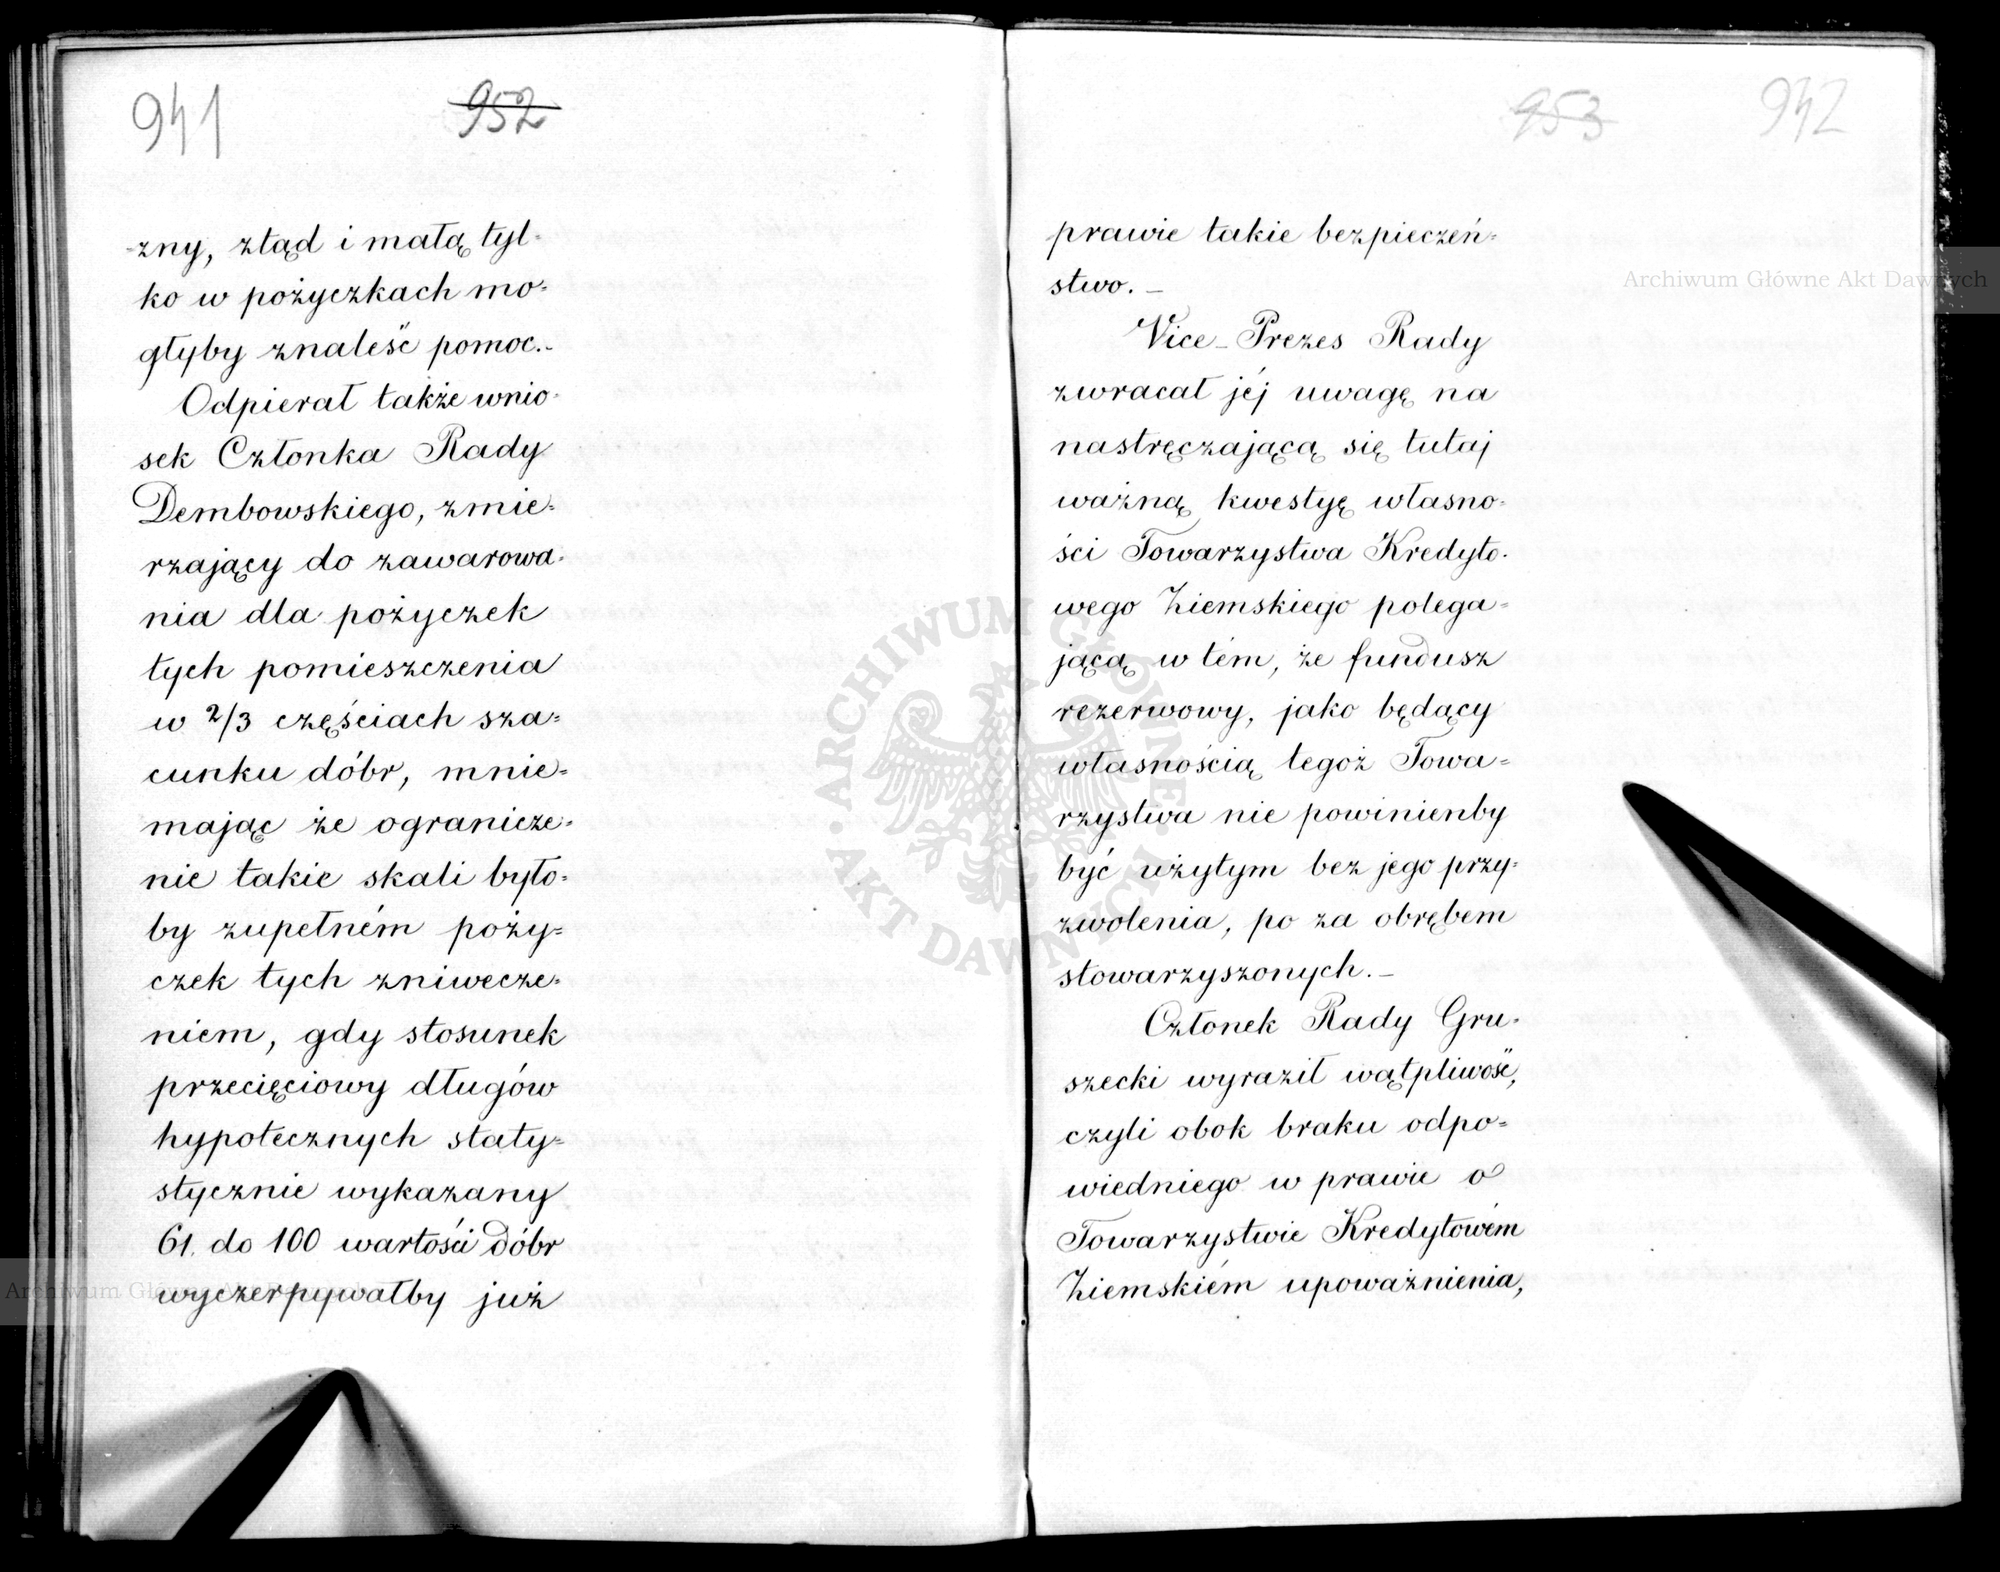 941 952
zny, ztąd i małą tyl-
ko w pożyczkach mo-
głyby znaleść pomoc.-
Odpierał także wnio-
sek Członka Rady
Dembowskiego, zmie-
rzający do zawarowa-
nia dla pożyczek
tych pomieszczenia
w 2/3 częściach sza-
cunku dóbr, mnie-
mając że ogranicze-
nie takie skali było-
by zupełném poży-
czek tych zniwecze-
niem, gdy stosunek
przecięciowy długów
hypotecznych staty-
stycznie wykazany
61. do 100 wartości dóbr
wyczerpywałby już
953 942
prawie takie bezpieczeń-
stwo. -
Vice-Prezes Rady
zwracał jéj uwagę na
nastręczającą się tutaj
ważną kwestyę własno-
ści Towarzystwa Kredyto-
wego Ziemskiego polega-
jącą w tém, że fundusz
rezerwowy, jako będący
własnością tegoż Towa-
rzystwa nie powinienby
być użytym bez jego przy-
zwolenia, po za obrębem
stowarzyszonych. -
Członek Rady Gru-
szecki wyraził wątpliwość,
czyli obok braku odpo-
wiedniego w prawie o
Towarzystwie Kredytowém
Ziemskiém upoważnienia,
Archiwum Główne Akt Dawnych
ARCHIWUM GŁÓWNE
AKT DAWNYCH
Archiwum Główne Akt Dawnych